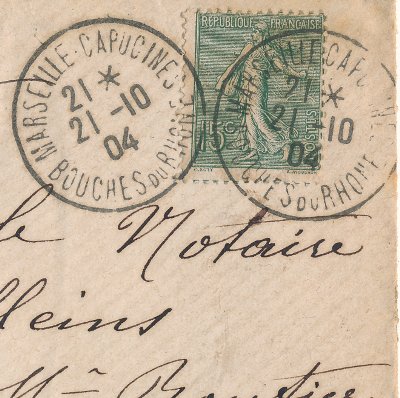 MARSEILLE-CAPUCINES
21 *
21 -10
04
BOUCHES DU RHONE
RÉPUBLIQUE FRANÇAISE
15c
POSTES
MARSEILLE-CAPUCINES
21 *
21 -10
04
BOUCHES DU RHONE
le Notaire
lleins